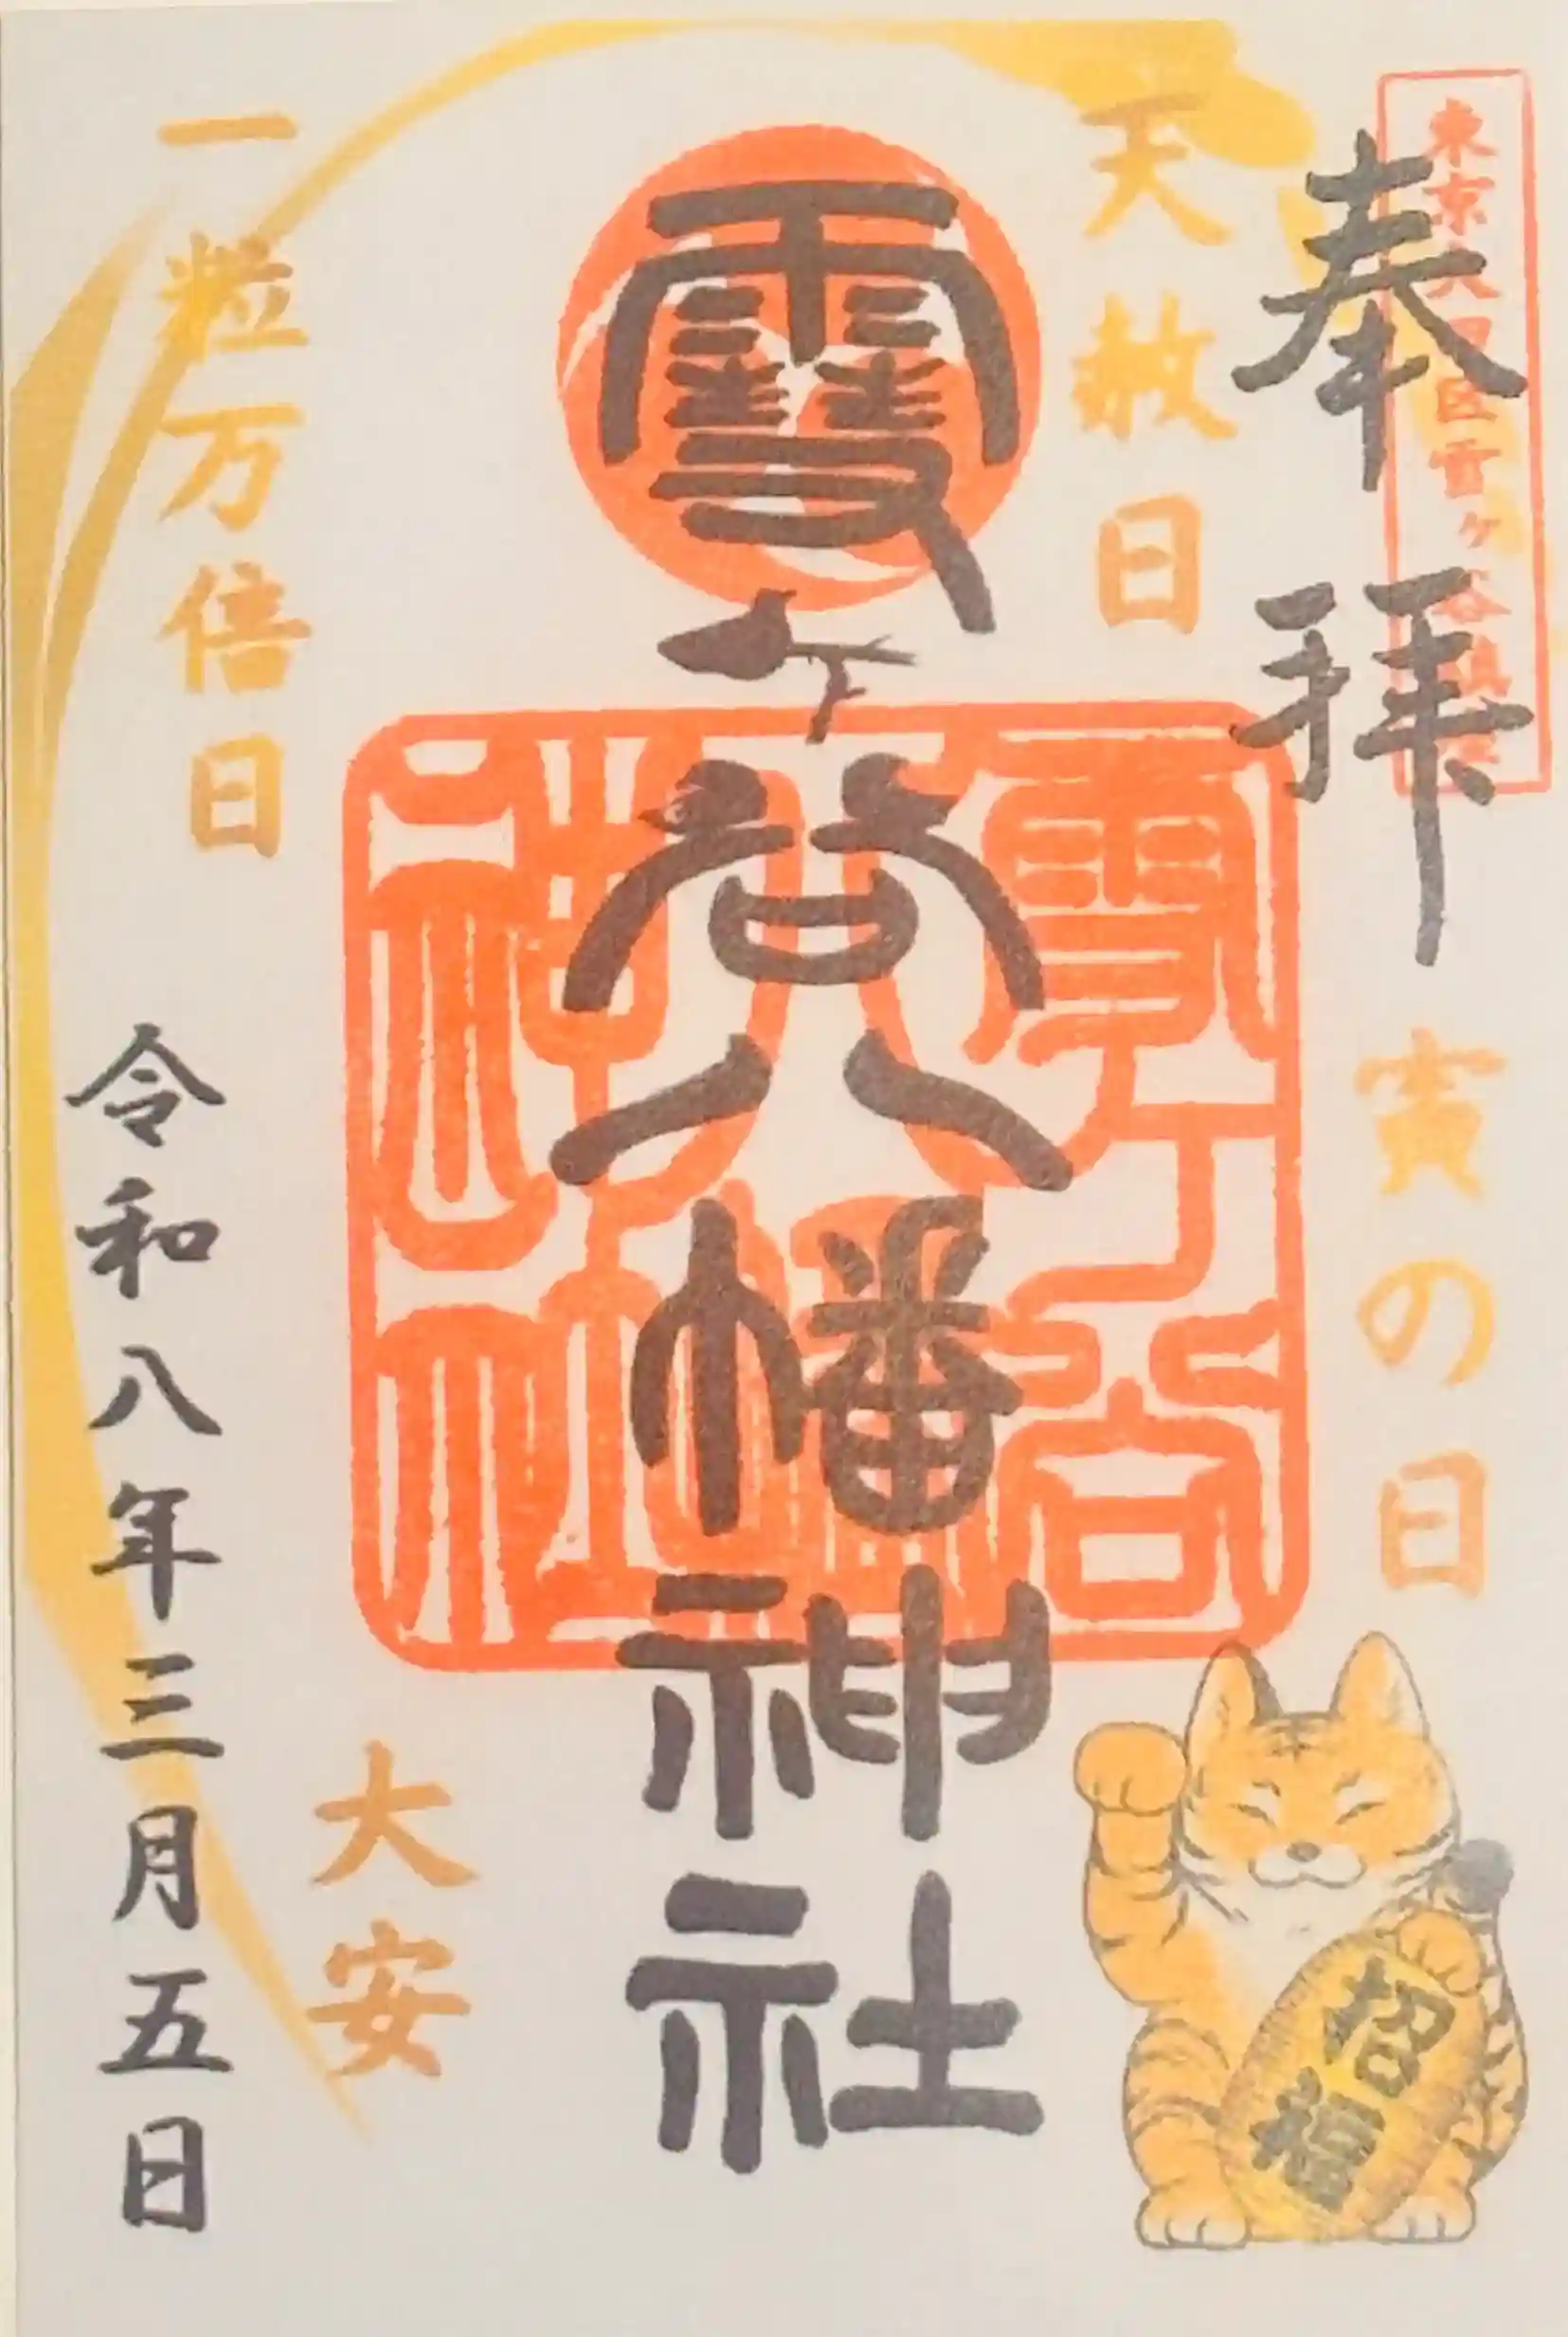 東京大田区雪ヶ谷鎮座
奉拝
寅の日
天赦日
雪ヶ谷八幡神社
雪ヶ谷八幡神社
一粒万倍日
大安
令和八年三月五日
招福